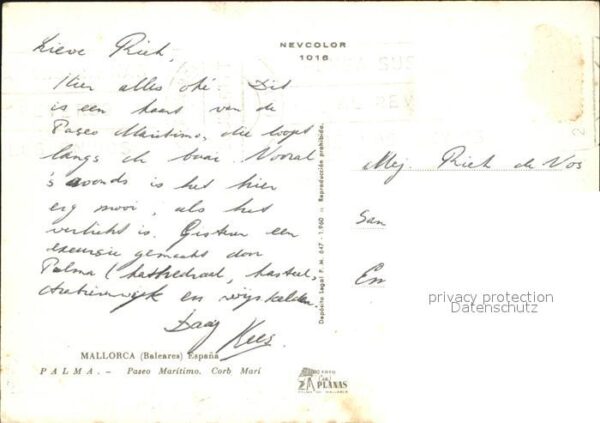 NEVCOLOR
1018
Lieve Rieh,
Hier alles oké. Dit
is een kaart van de
Paseo Maritimo, die loopt
langs de baai. Vooral
's avonds is het hier
erg mooi, als het
verlicht is. Gisteren een
excursie gemaakt door
Palma (kathedraal, kasteel,
Arabierenwijk en wijnkelder.
Daag
Kees
MALLORCA (Baleares) España
PALMA. - Paseo Marítimo. Corb Marí
Depósito Legal P. M. 647 - 1.960 - Reproducción prohibida.
Mej. Rieh de Vos
San
Em
privacy protection
Datenschutz
FOTO
PLANAS